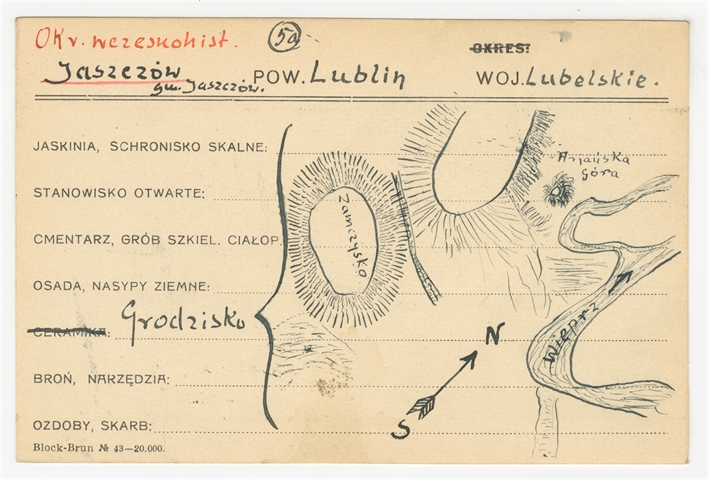 OKr. wczesnohist.
5a
OKRES:
Jaszczów POW. Lublin WOJ. Lubelskie.
gm. Jaszczów.
JASKINIA, SCHRONISKO SKALNE:
Arjańska
góra
STANOWISKO OTWARTE:
Zamczysko
CMENTARZ, GRÓB SZKIEL. CIAŁOP.
OSADA, NASYPY ZIEMNE:
CERAMIKA: Grodzisko
Wieprz
N
BROŃ, NARZĘDZIA:
S
OZDOBY, SKARB:
Block-Brun № 43—20.000.